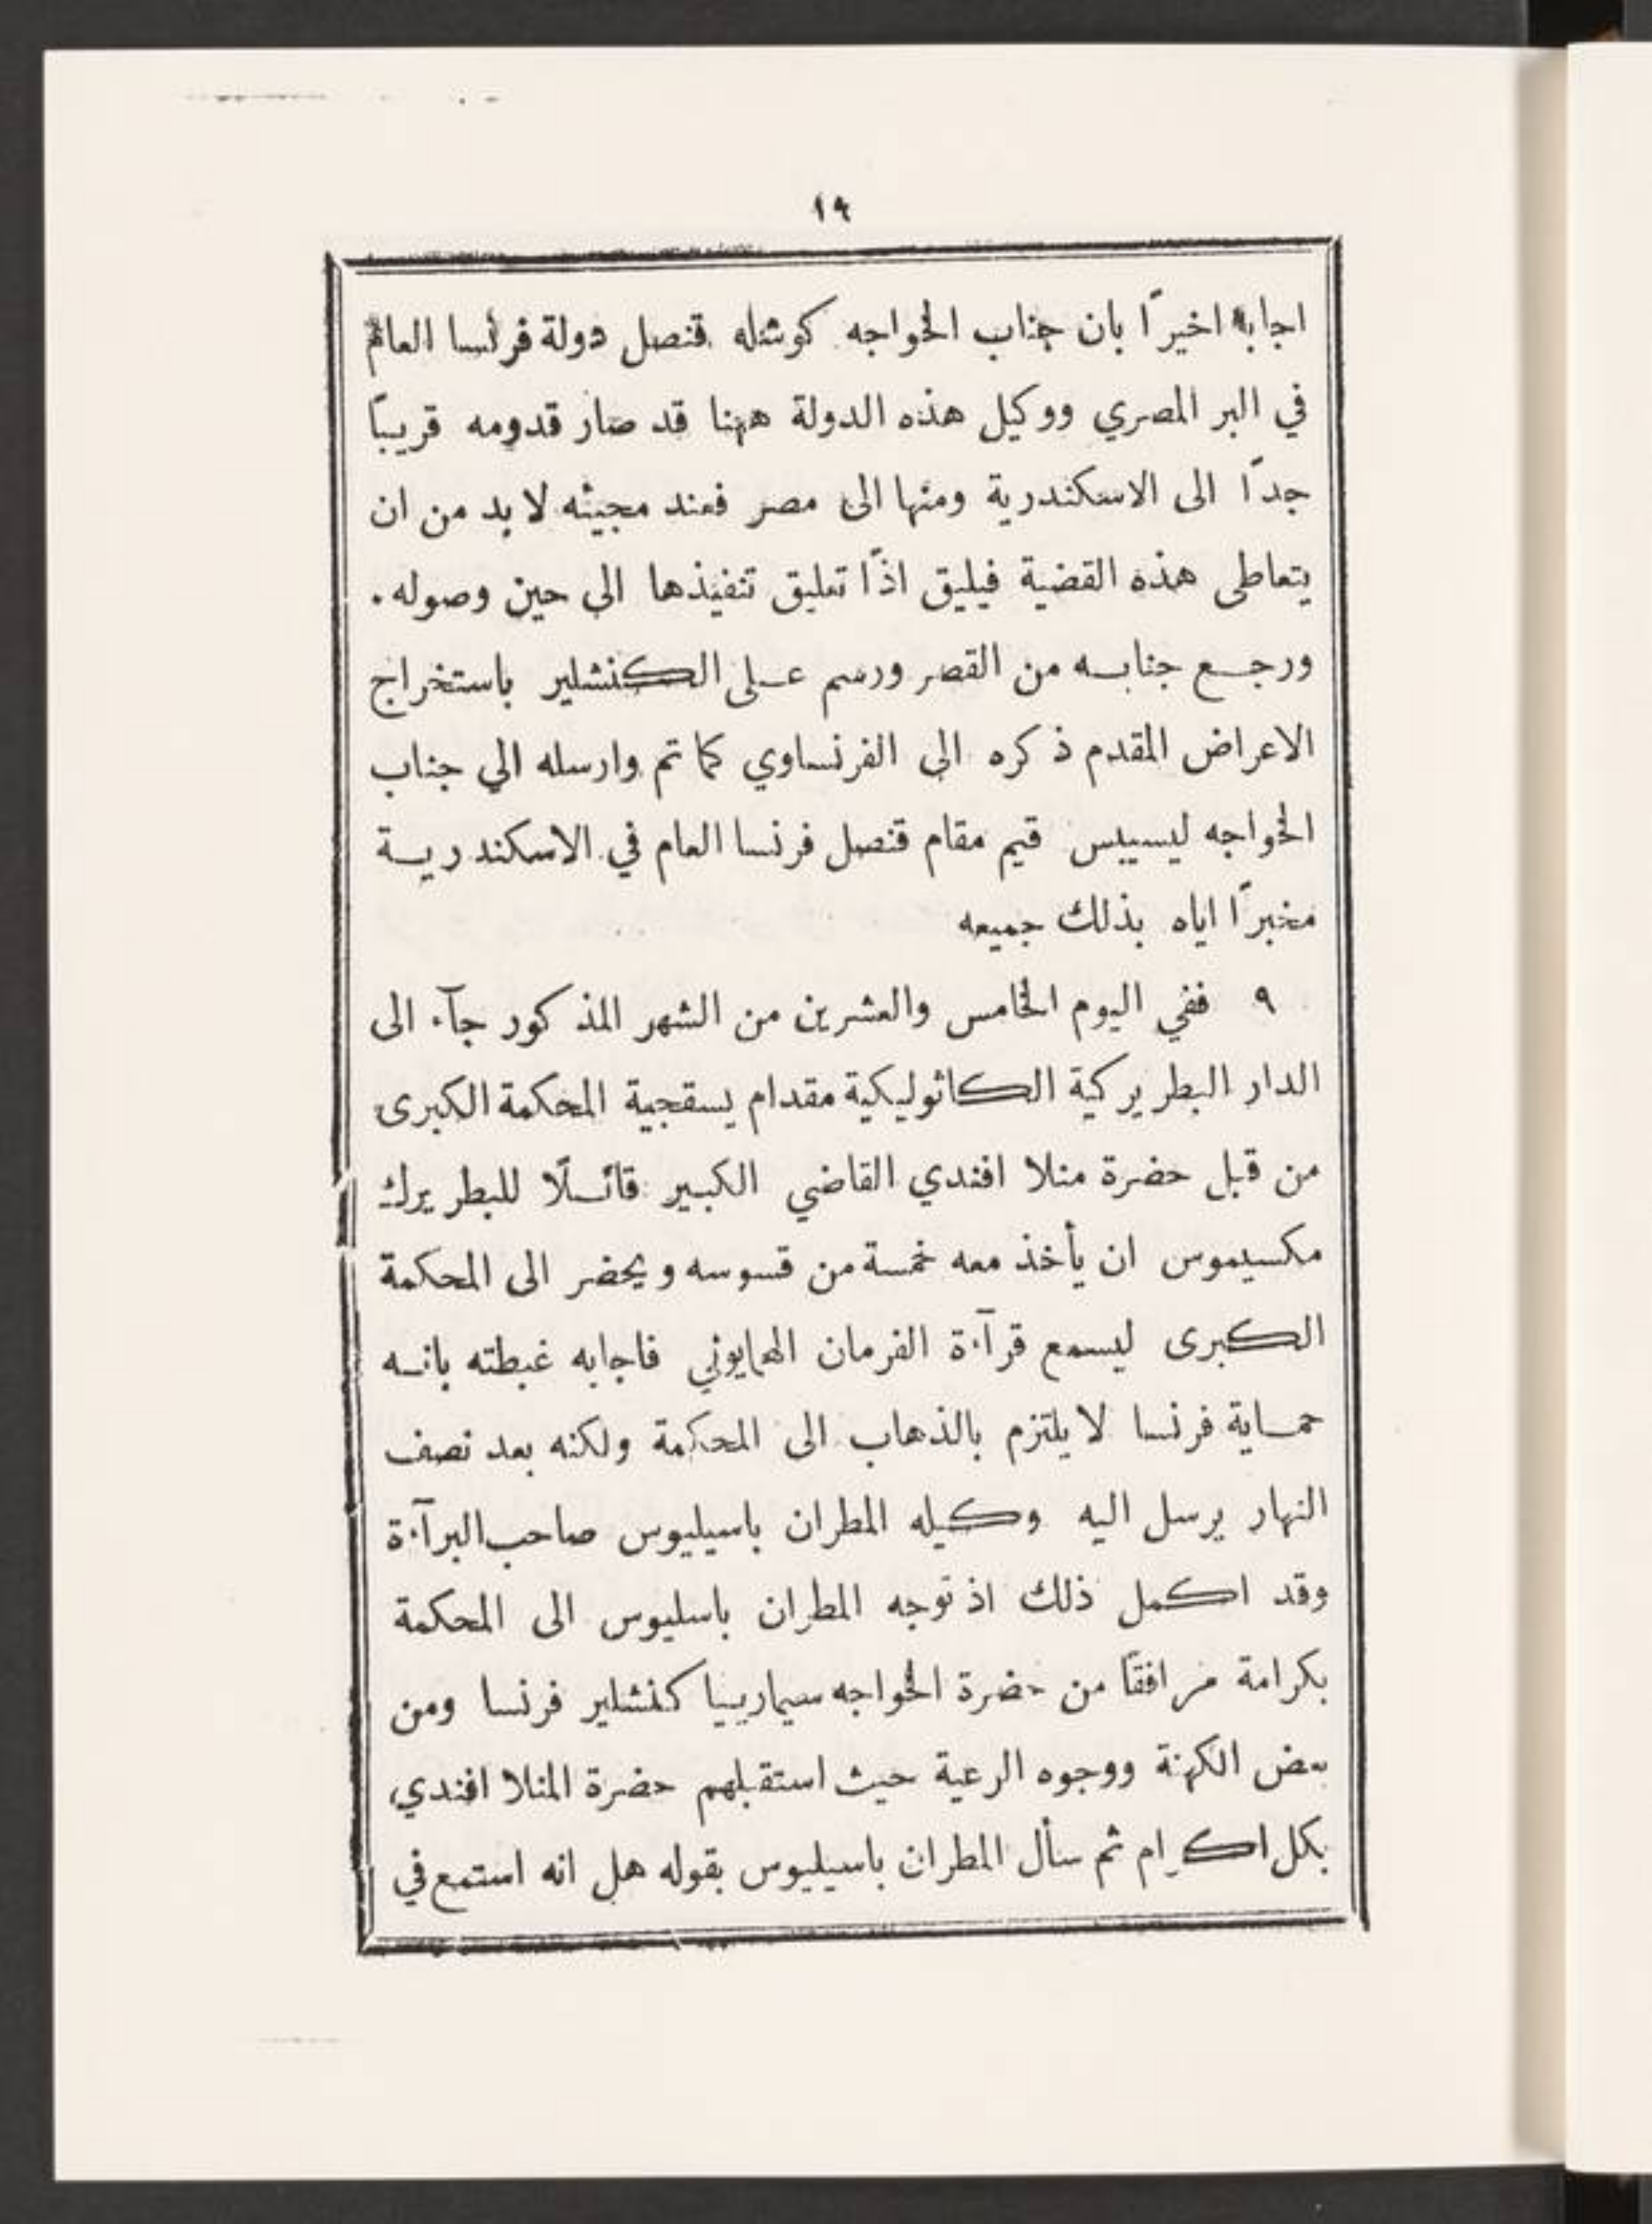 ١٩
اجابه اخيرًا بان جناب الخواجه كوشله قنصل دولة فرنسا العام
في البر المصري ووكيل هذه الدولة ههنا قد صار قدومه قريبًا
جدًا الى الاسكندرية ومنها الى مصر فعند مجيئه لا بد من ان
يتعاطى هذه القضية فيليق اذًا تعليق تنفيذها الى حين وصوله ٠
ورجع جنابه من القصر ورسم على الكنشلير باستخراج
الاعراض المقدم ذكره الى الفرنساوي كما تم وارسله الي جناب
الخواجه ليسيبس قيم مقام قنصل فرنسا العام في الاسكندرية
مخبرًا اياه بذلك جميعه
٩ ففي اليوم الخامس والعشرين من الشهر المذكور جآء الى
الدار البطريركية الكاثوليكية مقدام يسقجية المحكمة الكبرى
من قبل حضرة منلا افندي القاضي الكبير قائلًا للبطريرك
مكسيموس ان يأخذ معه خمسة من قسوسه ويحضر الى المحكمة
الكبرى ليسمع قرآءة الفرمان الهمايوني فاجابه غبطته بانه
حماية فرنسا لا يلتزم بالذهاب الى المحكمة ولكنه بعد نصف
النهار يرسل اليه وكيله المطران باسيليوس صاحب البرآءة
وقد اكمل ذلك اذ توجه المطران باسليوس الى المحكمة
بكرامة مرافقًا من حضرة الخواجه سيماريبيا كنشلير فرنسا ومن
بعض الكهنة ووجوه الرعية حيث استقبلهم حضرة المنلا افندي
بكل اكرام ثم سأل المطران باسيليوس بقوله هل انه استمع في